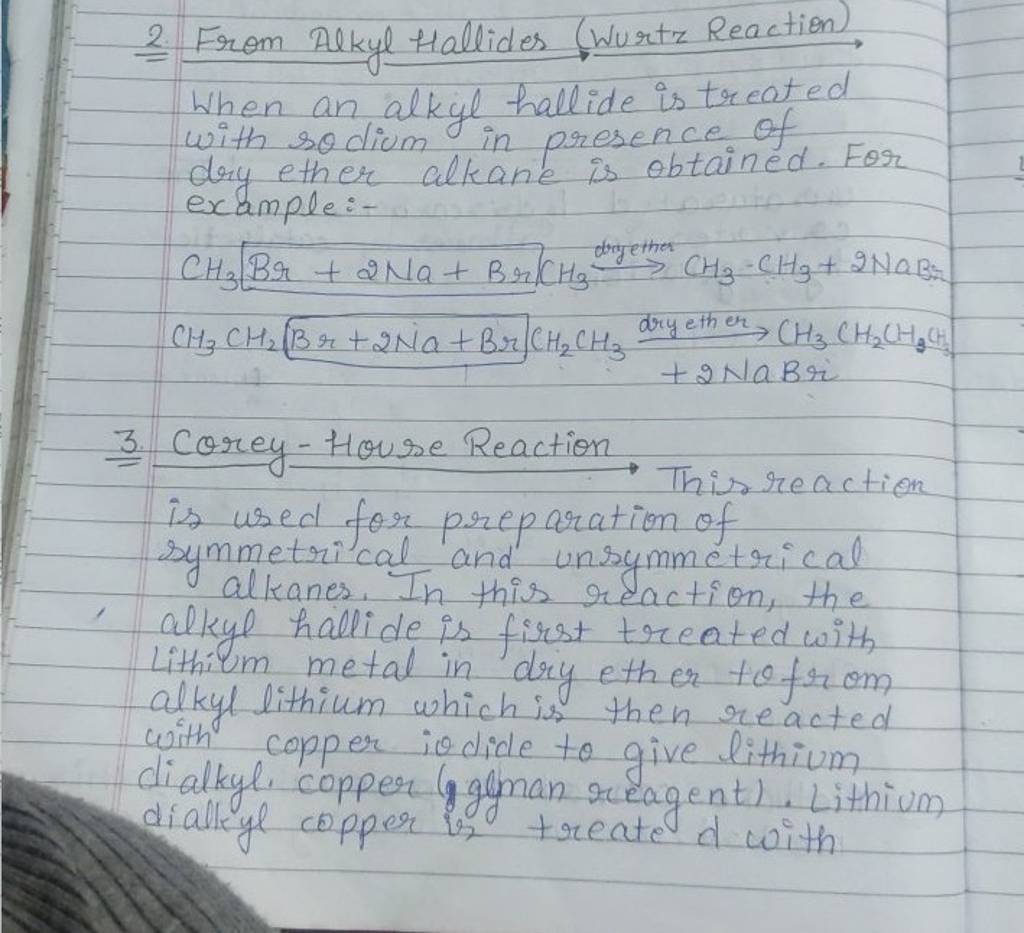 2. From Alkyl Hallides (Wurtz Reaction)
When an alkyl hallide is treated
with sodium in presence of
dry ether alkane is obtained. For
example:-
CH3 Br + 2Na + Br CH3 dry ether → CH3 - CH3 + 2NaBr
CH3 CH2 Br + 2Na + Br CH2 CH3 dry ether → CH3 CH2 CH2 CH3
+ 2NaBr
3. Corey - House Reaction
This reaction
is used for preparation of
symmetrical and unsymmetrical
alkanes. In this reaction, the
alkyl hallide is first treated with
Lithium metal in dry ether to from
alkyl lithium which is then reacted
with copper iodide to give lithium
dialkyl. copper (gylman reagent). Lithium
dialkyl copper is treated with